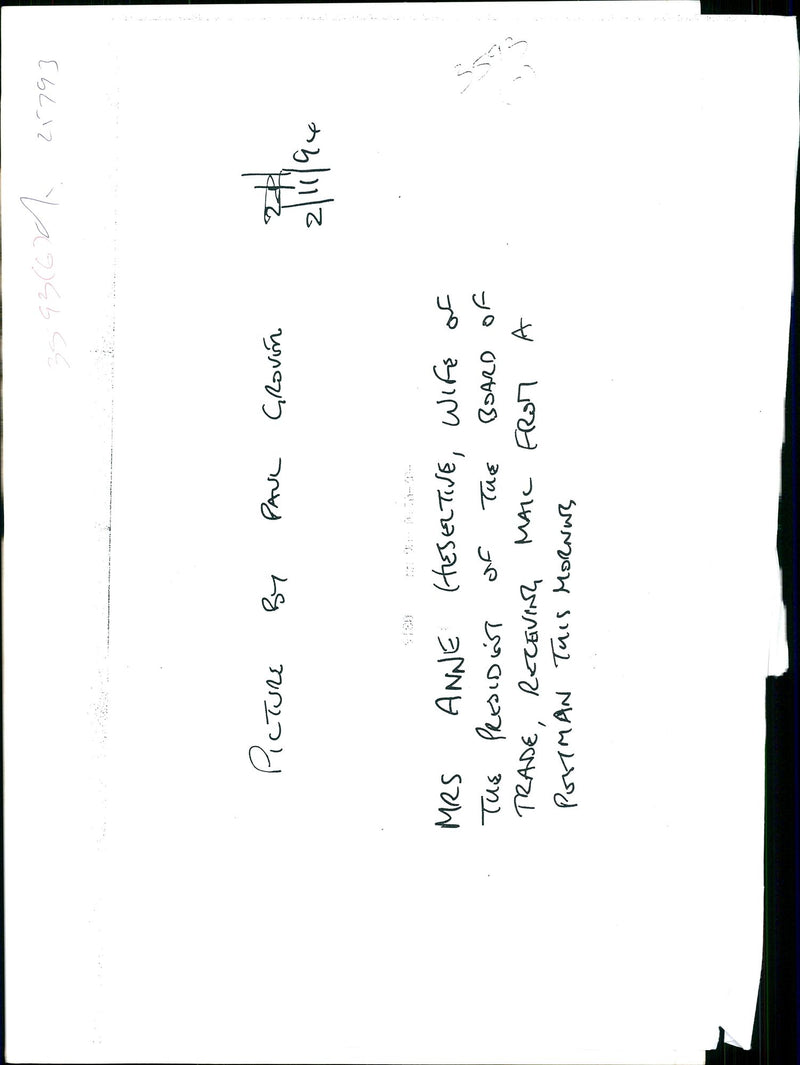 PICTURE BY PAUL GROVER
2/11/94
MRS ANNE HESELTINE, WIFE OF
THE PRESIDENT OF THE BOARD OF
TRADE, RECEIVING MAIL FROM A
POSTMAN THIS MORNING
3593(6)
25793
3593